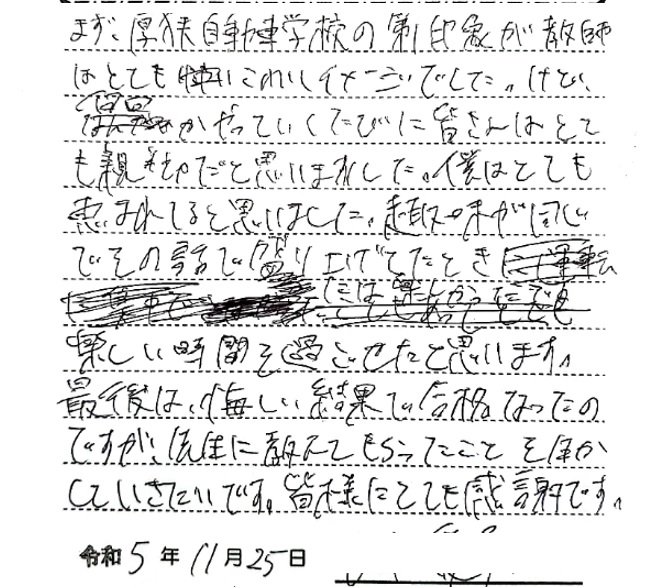 まず、厚狭自動車学校の第1印象が教師
はとても怖いこわいイメージでした。けど、
何回かやっていくたびに皆さんはとて
も親切だと思いました。僕はとても
恵まれてると思いました。趣味が同じ
でその話で盛り上げてたとき
楽しい時間を過ごせたと思います。
最後は、悔しい結果で合格なったの
ですが、先生に教えてもらったことを活か
していきたいです。皆様にとても感謝です。
令和5年11月25日